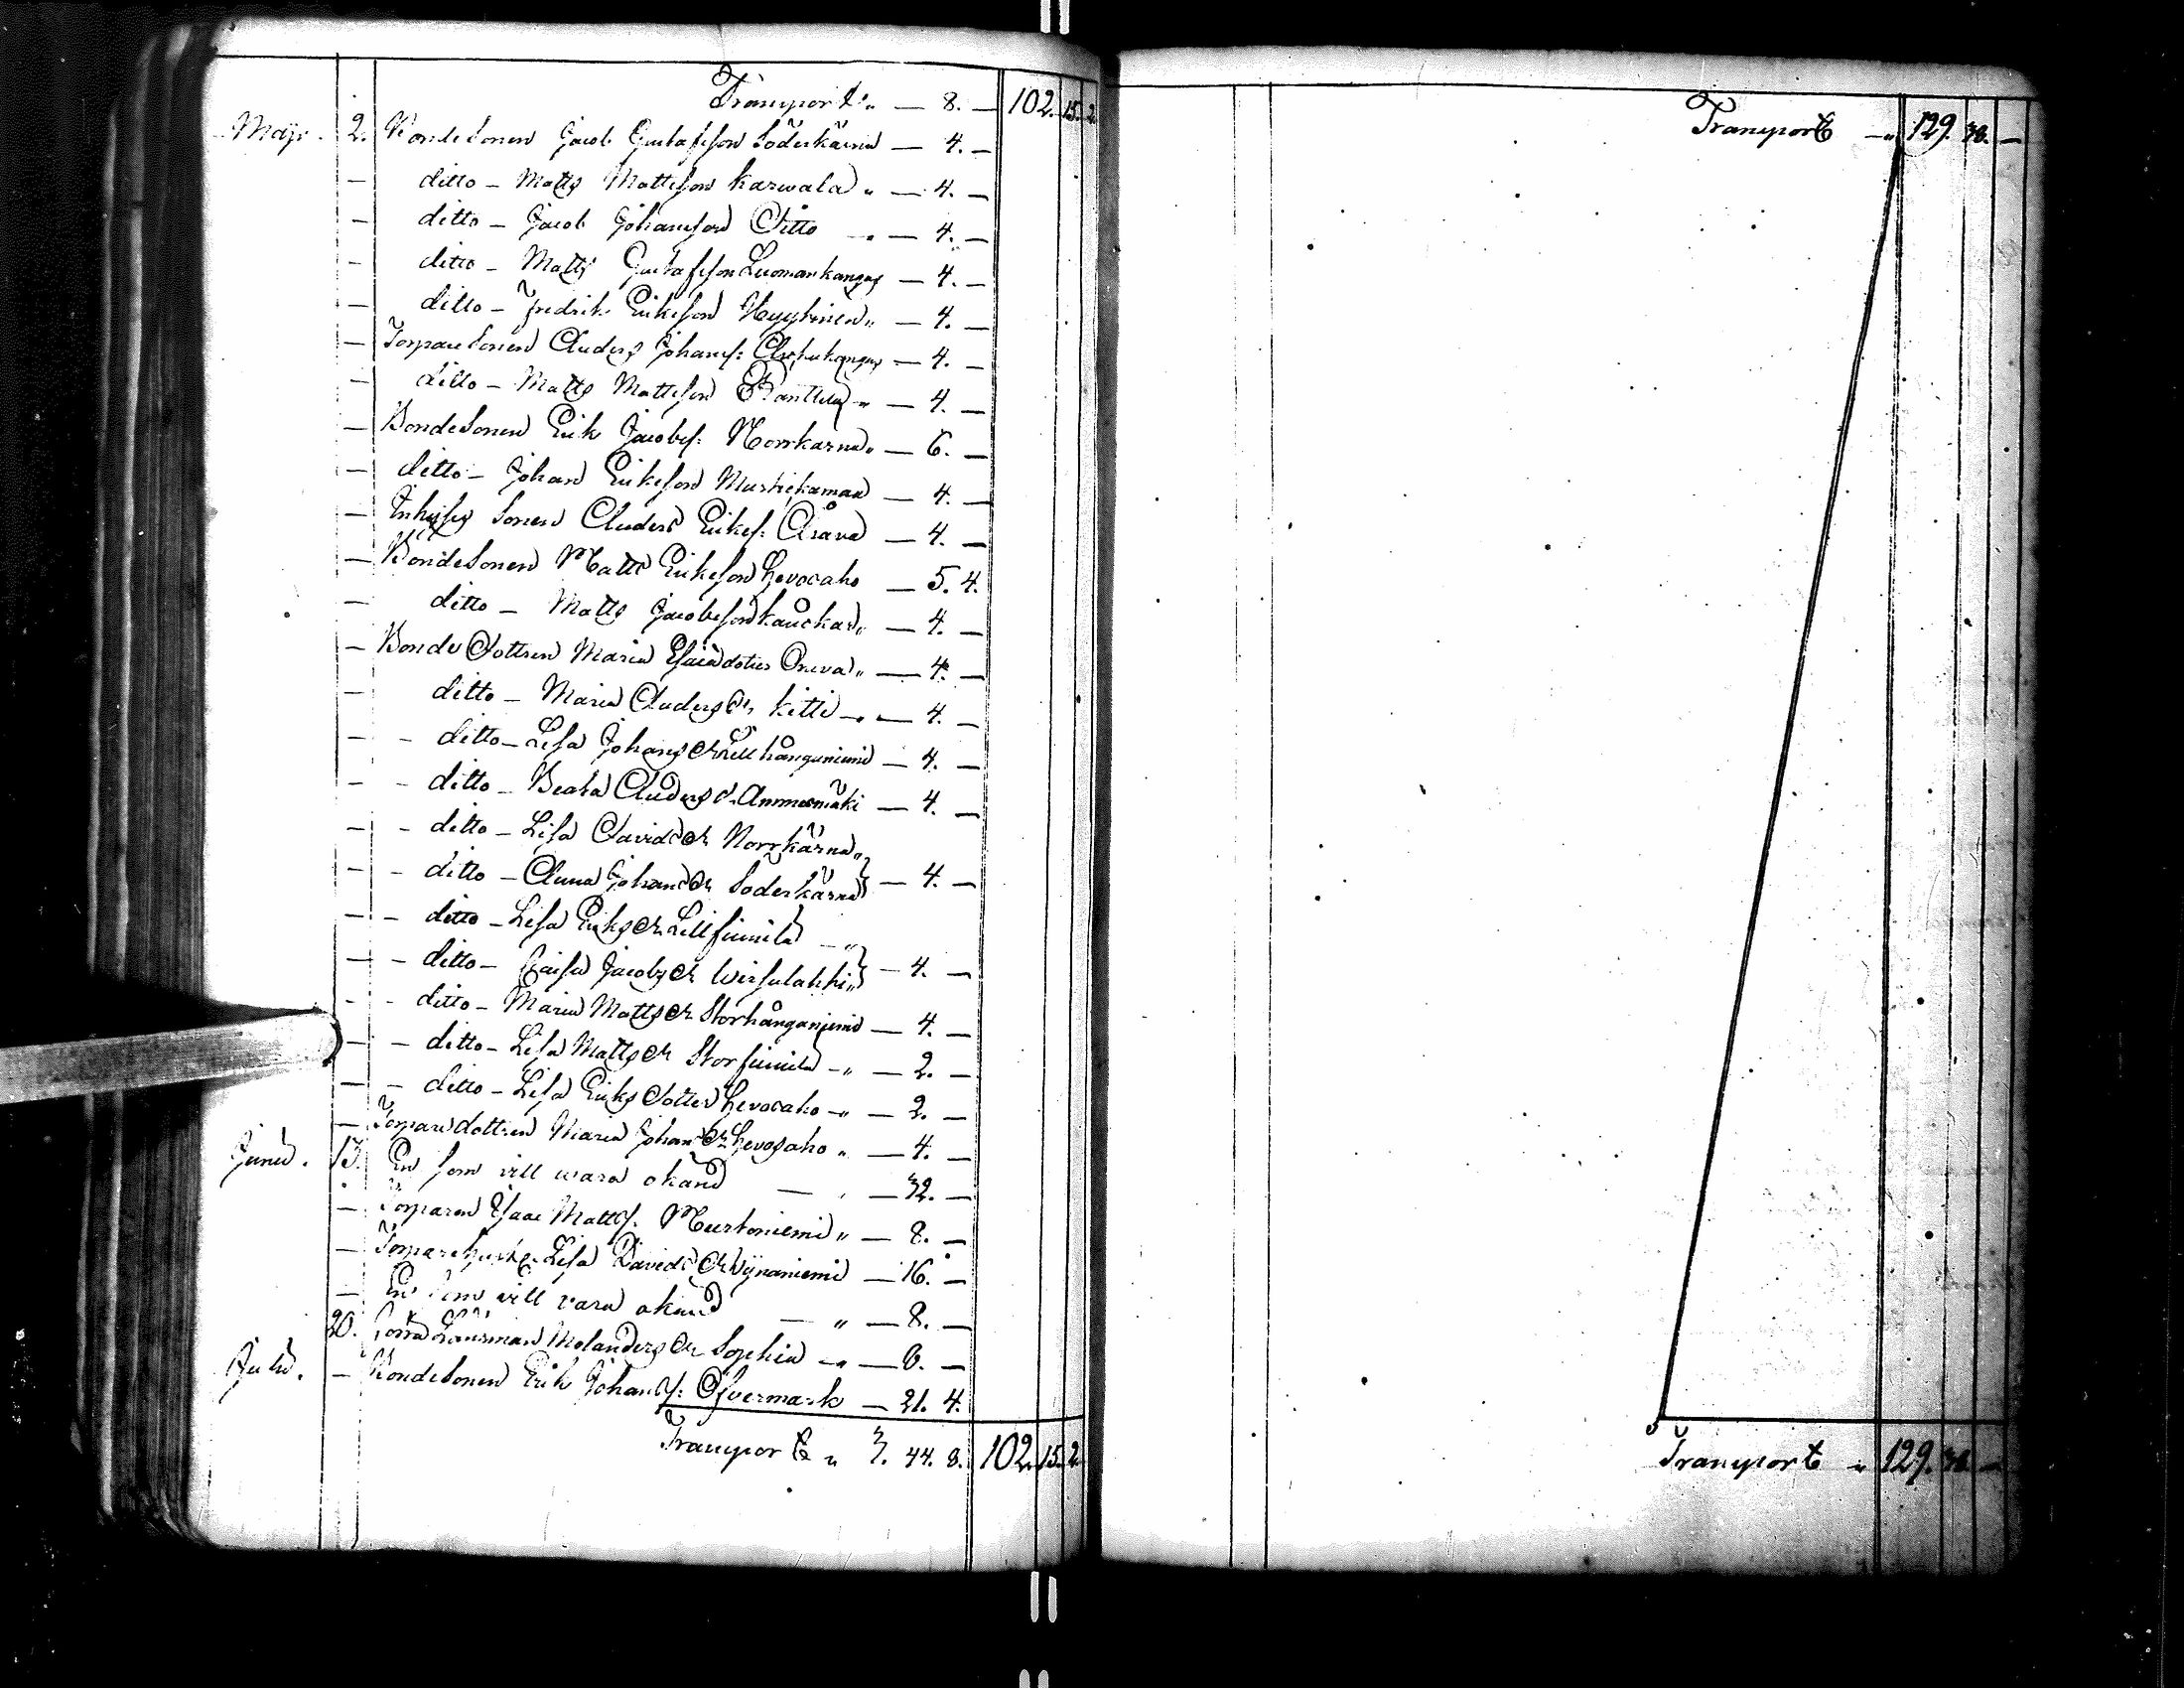 Transport „ — 8. — 102. 15. 2.
Maji. 2. Bondesonen Jacob Gustafsson Söderkärna — 4. —
— ditto — Matts Mattsson Karwala „ — 4. —
— ditto — Jacob Johansson Ditto „ — 4. —
— ditto — Matts Gustafsson Luomankangas — 4. —
— ditto — Fredrik Eriksson Hyytinen „ — 4. —
— Torparesonen Anders Johansf: — 4. —
— ditto — Matts Mattsson „ — 4. —
— Bondesonen Erik Jacobsf: Norrkärna „ — 6. —
— ditto — Johan Eriksson — 4. —
— Inhyses Sonen Anders Eriksf: — 4. —
— Bondesonen Matts Eriksson Hevosaho — 5. 4.
— ditto — Matts Jacobsson Kauckas „ — 4. —
— Bonde Dottren Maria Esaiædotter „ — 4. —
— ditto — Maria Anders Dr Kitti „ — 4. —
— ditto — Lisa Johans Dr Lillhånganiemi — 4. —
— ditto — Beata Anders d. Ammesmäki — 4. —
— ditto — Lisa Davids Dr Norrkärna „
— ditto — Anna Johans Dr Söderkärna } — 4. —
— ditto — Lisa Eriks Dr Lillfinnila „
— ditto — Caisa Jacobs Dr Wirsulahki „ } — 4. —
— ditto — Maria Matts Dr Storhånganiemi — 4. —
— ditto — Lisa Matts Dr Storfinnila „ — 2. —
— ditto — Lisa Eriks Dotter Hevosaho „ — 2. —
— Torparedottren Maria Johans Dr Hevosaho „ — 4. —
Junii. 13. En som vill wara okänd — „ — 32. —
— Torparen Isaac Mattsf. Murtoniemi „ — 8. —
— Lisa Davids Dr Wynaniemi — 16. —
— En som vill vara okänd — „ — 8. —
20. Länsman Molanders Dr Sophia „ — 6. —
Julii. — Bondesonen Erik Johansf: Öfvermark — 21. 4.
Transport „ 3. 44. 8. 102. 15. 2.
Transport „ 129. 38. —
Transport „ 129. 38. —